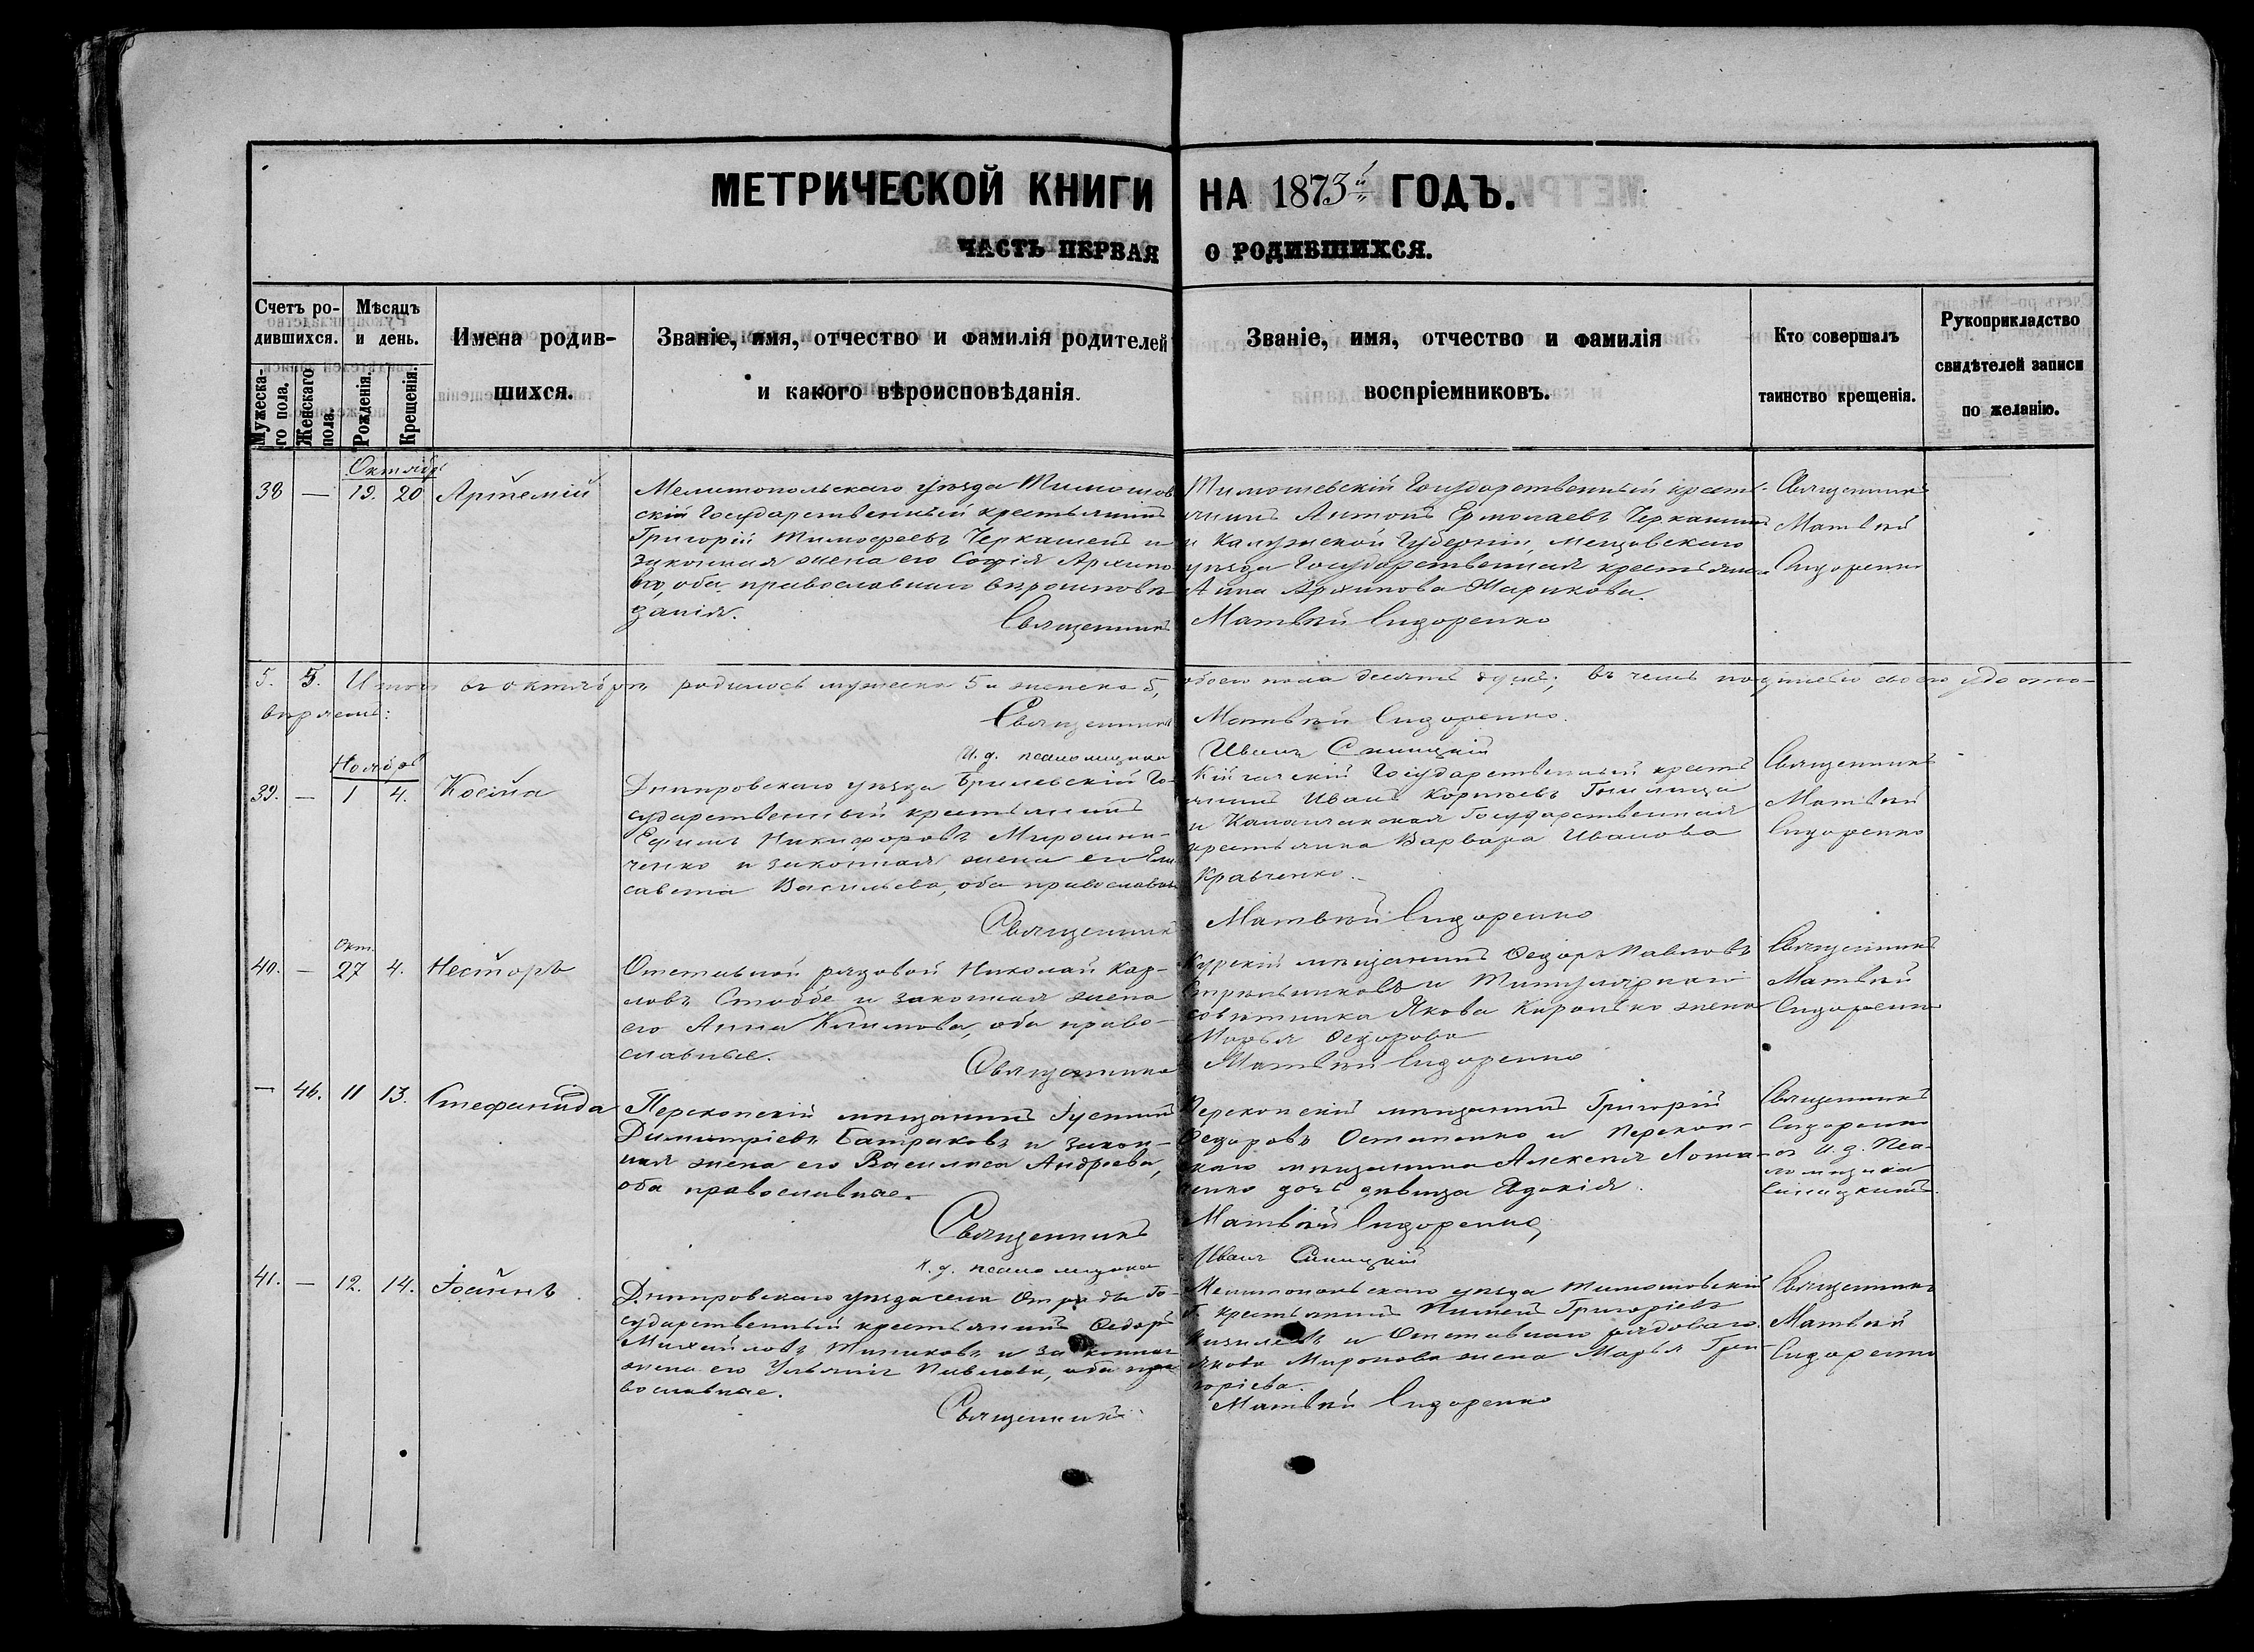 МЕТРИЧЕСКОЙ КНИГИ НА 1873й ГОДЪ.
ЧАСТЬ ПЕРВАЯ О РОДИВШИХСЯ.
Счетъ родившихся.
Мужескаго пола.
Женскаго пола.
Мѣсяцъ и день.
Рожденія.
Крещенія.
Имена родив-
шихся.
Званіе, имя, отчество и фамилія родителей
и какого вѣроисповѣданія.
Званіе, имя, отчество и фамилія
воспріемниковъ.
Кто совершалъ
таинство крещенія.
Рукоприкладство
свидѣтелей записи
по желанію.
Октябрь
38 — 19. 20 Артемій
Мелитопольскаго уѣзда Тимошов
скій Государственный крестьянинъ
Григорій Тимофеевъ Черкашенъ и
законная жена его Софія Архипо
ва, оба православнаго вѣроисповѣ
данія.
Священникъ
Тимошевскій Государственный кресть
янинъ Антонъ Ермолаевъ Черкашинъ
и Калужской Губерніи, Мещовскаго
уѣзда Государственная крестьянка
Анна Архипова Жарикова.
Матвѣй Сидоренко
Священникъ
Матвѣй
Сидоренко
5. 5. Итого въ октябрѣ родилось мужеска 5 и женска 5, обоего пола десять душъ; въ чемъ подписью своею удосто-
вѣряемъ:
Священникъ Матвѣй Сидоренко.
И. д. псаломщика Иванъ Синицкій
Ноябрь
39. — 1 4. Косьма
Днѣпровскаго уѣзда Брилевскій Го-
сударственный крестьянинъ
Ефимъ Никифоровъ Мирошни-
ченко и законная жена его Ели
савета Васильева, оба православные
Священникъ
Государственный кресть
янинъ Иванъ Корнѣевъ
и Каланчакская Государственная
крестьянка Варвара Иванова
Кравченко.
Матвѣй Сидоренко
Священникъ
Матвѣй
Сидоренко
Окт.
40. — 27 4. Несторъ
Отставной рядовой Николай Кар-
ловъ Стоббе и законная жена
его Анна Климова, оба право-
славные.
Священникъ
Курскій мѣщанинъ Ѳедоръ Павловъ
и Титулярнаго
совѣтника Якова Королько жена
Марья Ѳедорова
Матвѣй Сидоренко
Священникъ
Матвѣй
Сидоренко
— 46. 11 13. Стефанида
Перекопскій мѣщанинъ Іустинъ
Димитріевъ Батраковъ и закон-
ная жена его Василиса Андреева,
оба православные.
Священникъ
И. д. псаломщика
Перекопскій мѣщанинъ Григорій
Ѳедоровъ Остапенко и Перекоп-
скаго мѣщанина Алексѣя
дочь дѣвица Евдокія.
Матвѣй Сидоренко,
Иванъ Синицкій
Священникъ
Сидоренко
съ И. д. Пса-
ломщика
Синицкимъ.
41. — 12. 14. Іоаннъ
Днѣпровскаго уѣзда села Отрады Го-
сударственный крестьянинъ Ѳедоръ
Михайловъ и законная
жена его Ульянія Павлова, оба пра
вославные.
Священникъ
Мелитопольскаго уѣзда Тимошовскій
Г. крестьянинъ Пименъ Григоріевъ
и Отставнаго рядоваго
Якова Миронова жена Марья Гри-
горіева.
Матвѣй Сидоренко
Священникъ
Матвѣй
Сидоренко